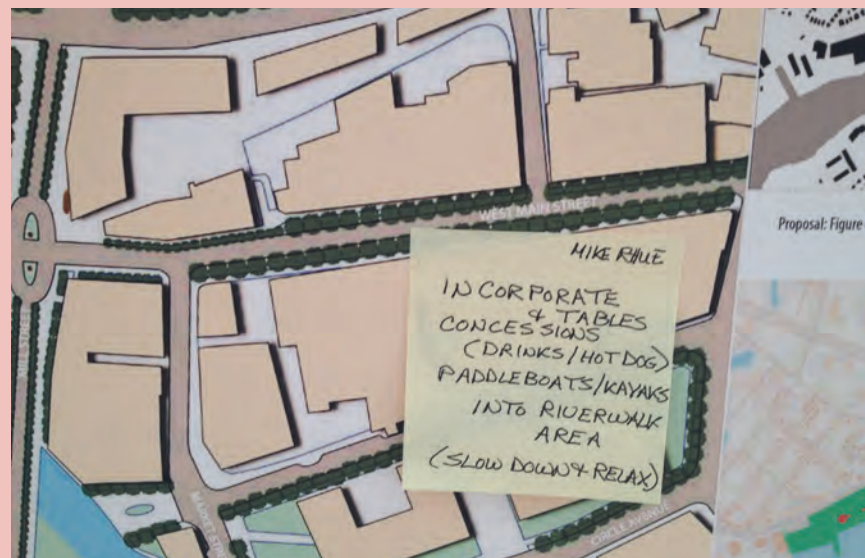 WEST MAIN STREET
Proposal: Figure
MIKE RHUE
INCORPORATE
& TABLES
CONCESSIONS
(DRINKS/HOT DOG)
PADDLEBOATS/KAYAKS
INTO RIVERWALK
AREA
(SLOW DOWN & RELAX)
MARKET STR
CIRCLE AVENUE